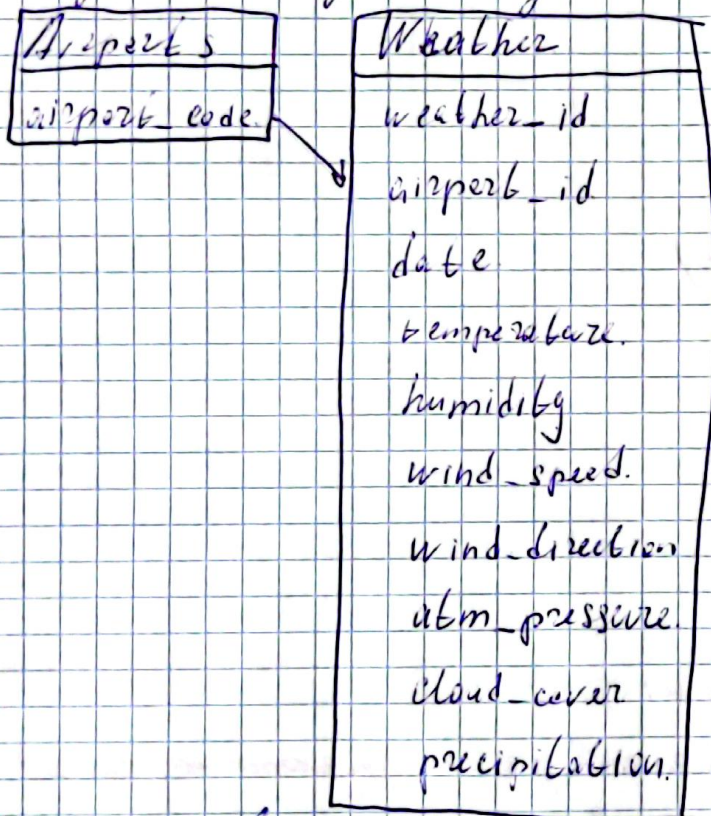 Airports
airport_code.
Weather
weather_id
airport_id
date.
temperature.
humidity
wind_speed.
wind_direction
atm_pressure.
cloud_cover
precipitation.